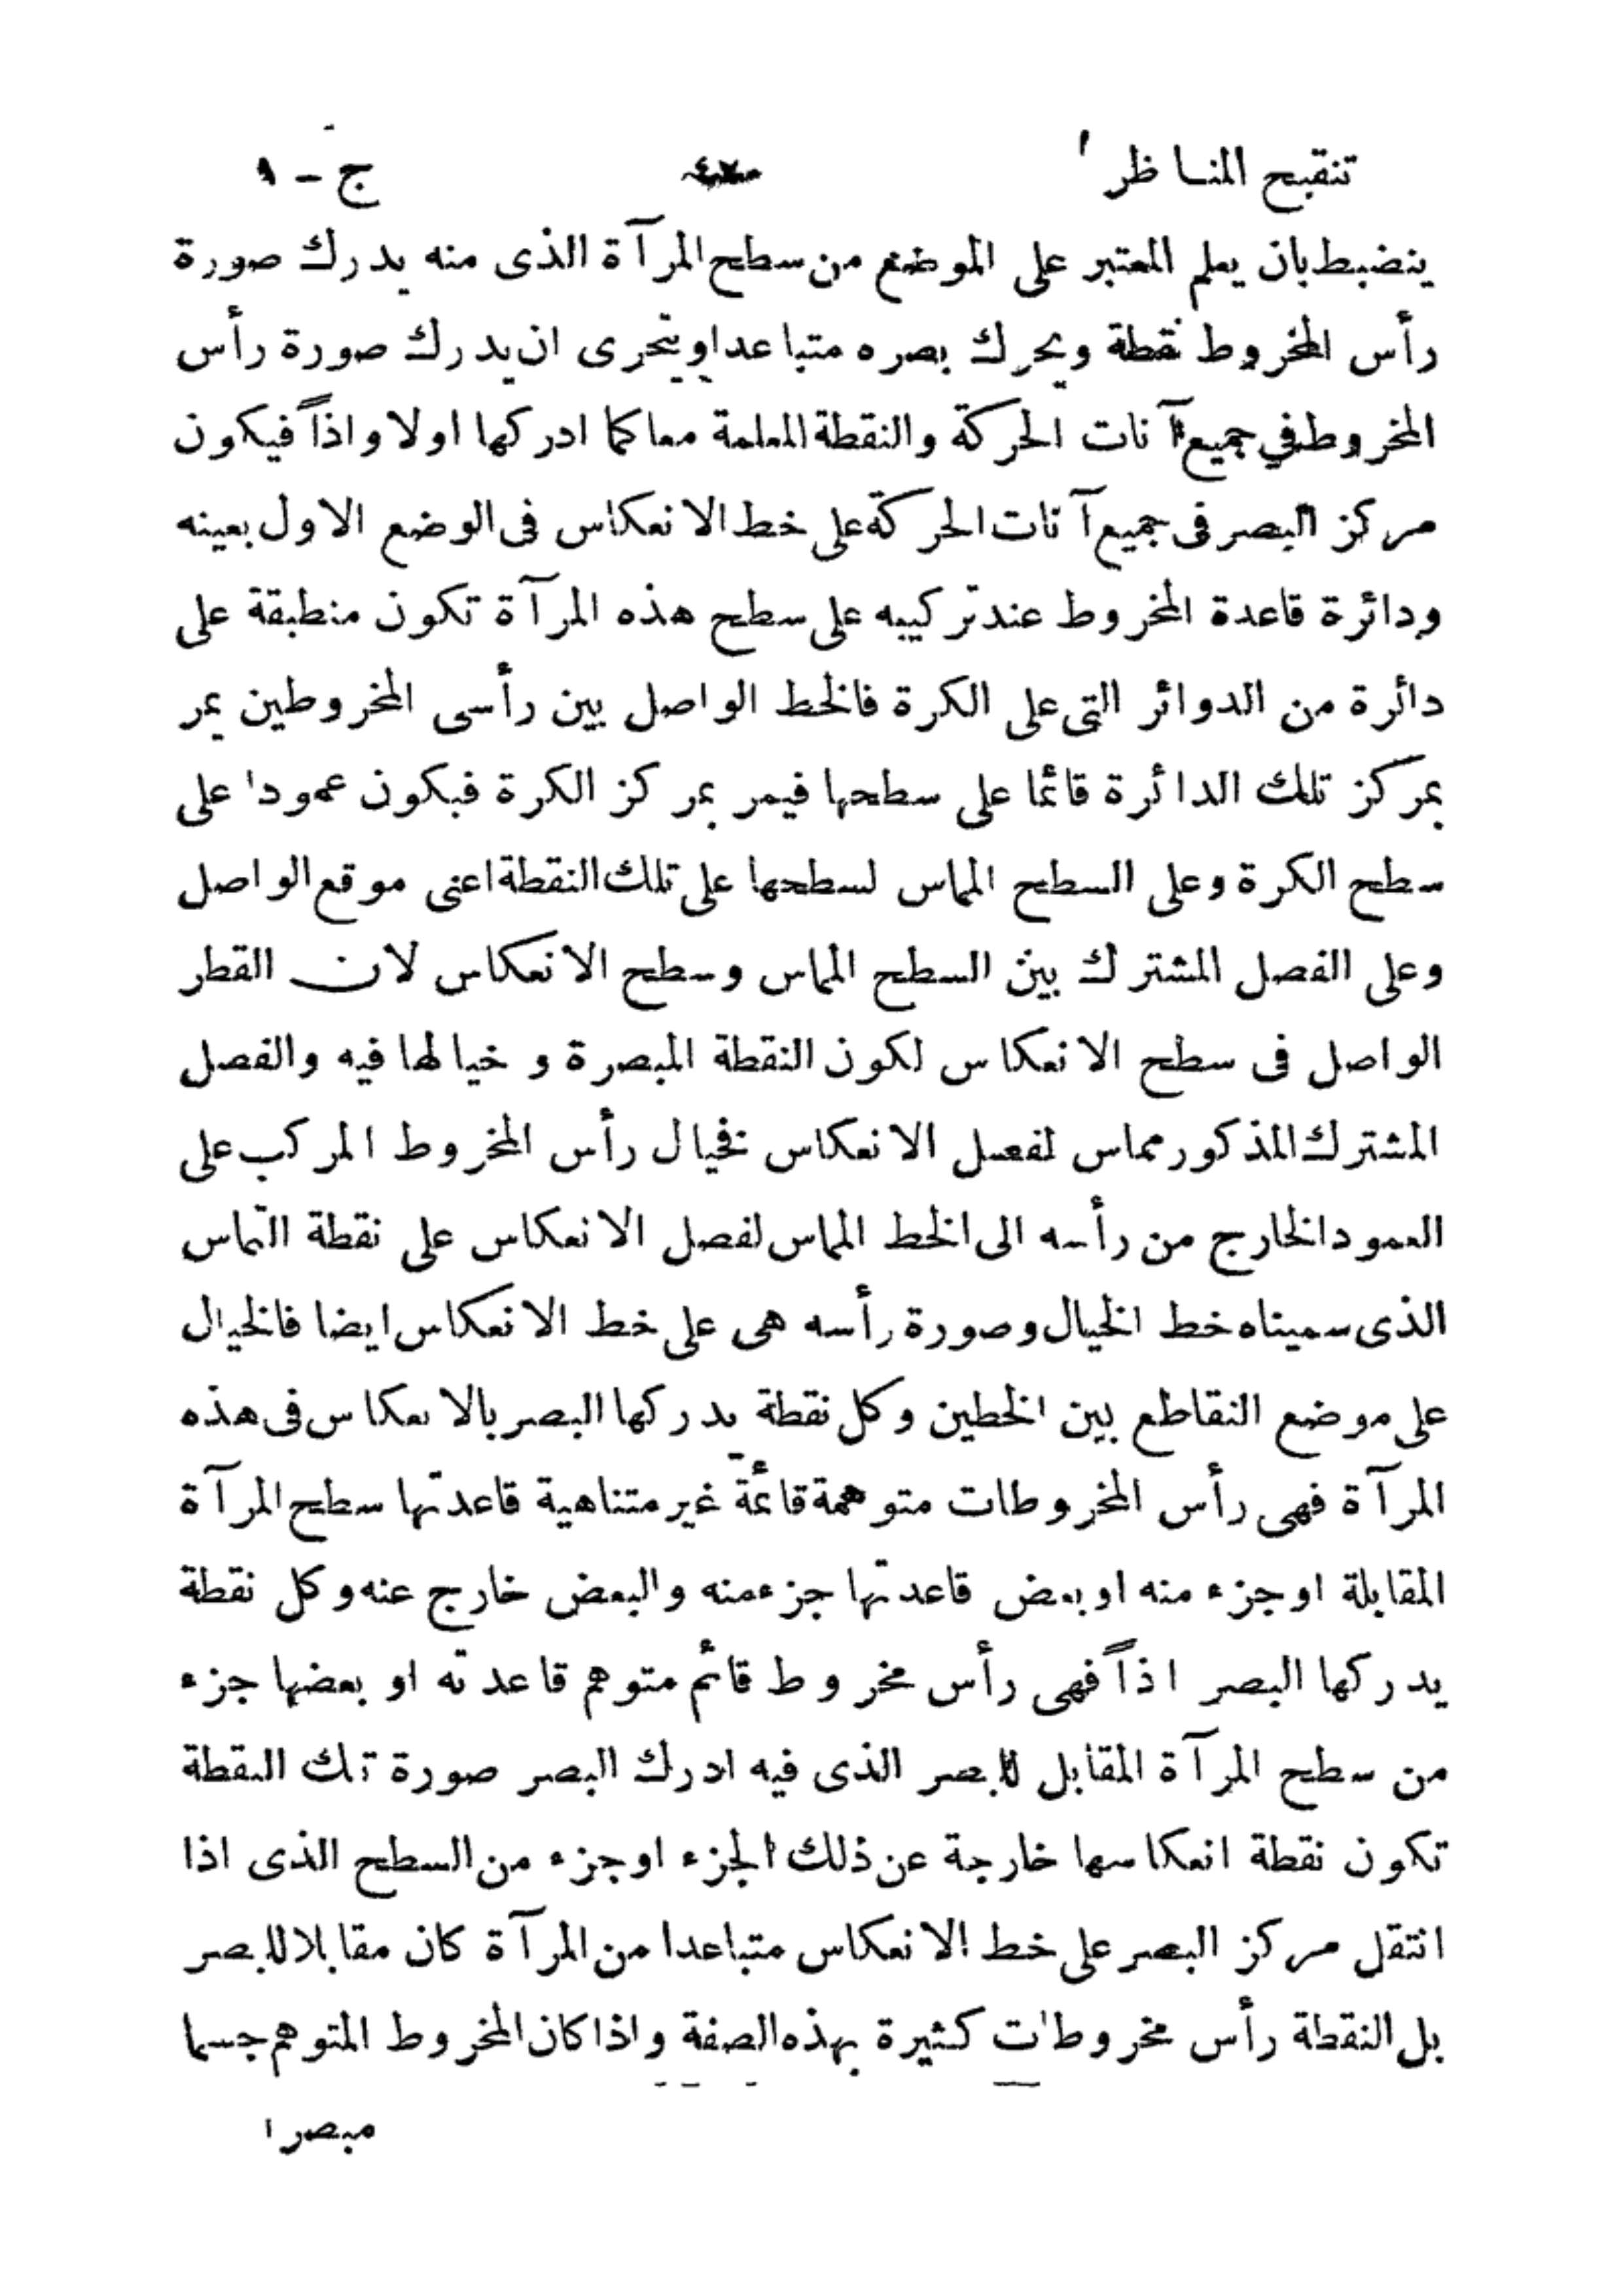 تنقيح المناظر ج - ١
ينضبط بان يعلم المعتبر على الموضع من سطح المرآة الذى منه يدرك صورة
رأس المخروط نقطة ويحرك بصره متباعدا ويتحرى ان يدرك صورة رأس
المخروط في جميع آنات الحركة والنقطة المعلمة معا كما ادركها اولا واذاً فيكون
مركز البصر فى جميع آنات الحركة على خط الانعكاس فى الوضع الاول بعينه
ودائرة قاعدة المخروط عند تركيبه على سطح هذه المرآة تكون منطبقة على
دائرة من الدوائر التى على الكرة فالخط الواصل بين رأسى المخروطين يمر
بمركز تلك الدائرة قائما على سطحها فيمر بمركز الكرة فيكون عمودا على
سطح الكرة وعلى السطح المماس لسطحها على تلك النقطة اعنى موقع الواصل
وعلى الفصل المشترك بين السطح المماس وسطح الانعكاس لان القطر
الواصل فى سطح الانعكاس لكون النقطة المبصرة و خيالها فيه والفصل
المشترك المذكور مماس لفصل الانعكاس فخيال رأس المخروط المركب على
العمود الخارج من رأسه الى الخط المماس لفصل الانعكاس على نقطة التماس
الذى سميناه خط الخيال وصورة رأسه هى على خط الانعكاس ايضا فالخيال
على موضع التقاطع بين الخطين وكل نقطة يدركها البصر بالانعكاس فى هذه
المرآة فهى رأس المخروطات متوهمة قائمة غير متناهية قاعدتها سطح المرآة
المقابلة او جزء منه او بعض قاعدتها جزء منه والبعض خارج عنه وكل نقطة
يدركها البصر اذاً فهى رأس مخروط قائم متوهم قاعدته او بعضها جزء
من سطح المرآة المقابل للبصر الذى فيه ادرك البصر صورة تلك النقطة
تكون نقطة انعكاسها خارجة عن ذلك الجزء او جزء من السطح الذى اذا
انتقل مركز البصر على خط الانعكاس متباعدا من المرآة كان مقابلا للبصر
بل النقطة رأس مخروطات كثيرة بهذه الصفة واذا كان المخروط المتوهم جسما
مبصرا